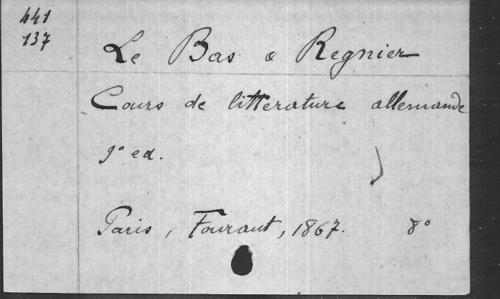 441
137
Le Bas & Regnier
Cours de litterature allemande
9º ed.
Paris, Fouraut, 1867. 8º